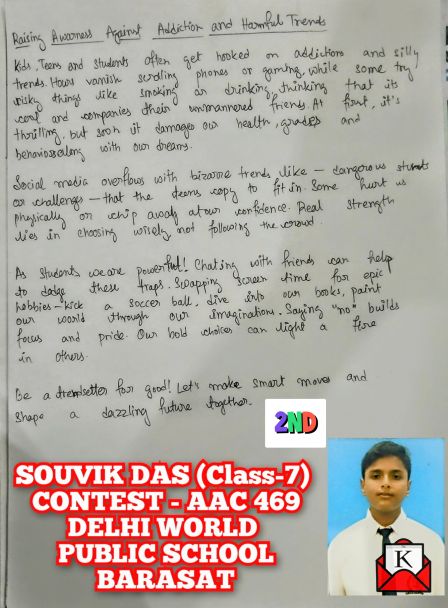 Raising Awarness Against Addiction and Harmful Trends
Kids, Teens and students often get hooked on addictions and silly
trends. Hours vanish scrolling phones or gaming, while some try
risky things like smoking or drinking, thinking that its
cool and companies their unmannered friends. At first, it's
thrilling, but soon it damages our health, grades and
behaviors along with our dreams.
Social media overflows with bizarre trends like - dangerous stunts
or challenges - that the teens copy to fit in. Some hurt us
physically or chip away at our confidence. Real strength
lies in choosing wisely, not following the crowd.
As students, we are powerful! Chating with friends can help
to dodge these traps. Swapping screen time for epic
hobbies - kick a soccer ball, dive into our books, paint
our world through our imaginations. Saying "no" builds
focus and pride. Our bold choices can light a fire
in others.
Be a trendsetter for good! Let's make smart moves and
shape a dazzling future together.
2ND
SOUVIK DAS (Class-7)
CONTEST - AAC 469
DELHI WORLD
PUBLIC SCHOOL
BARASAT
K